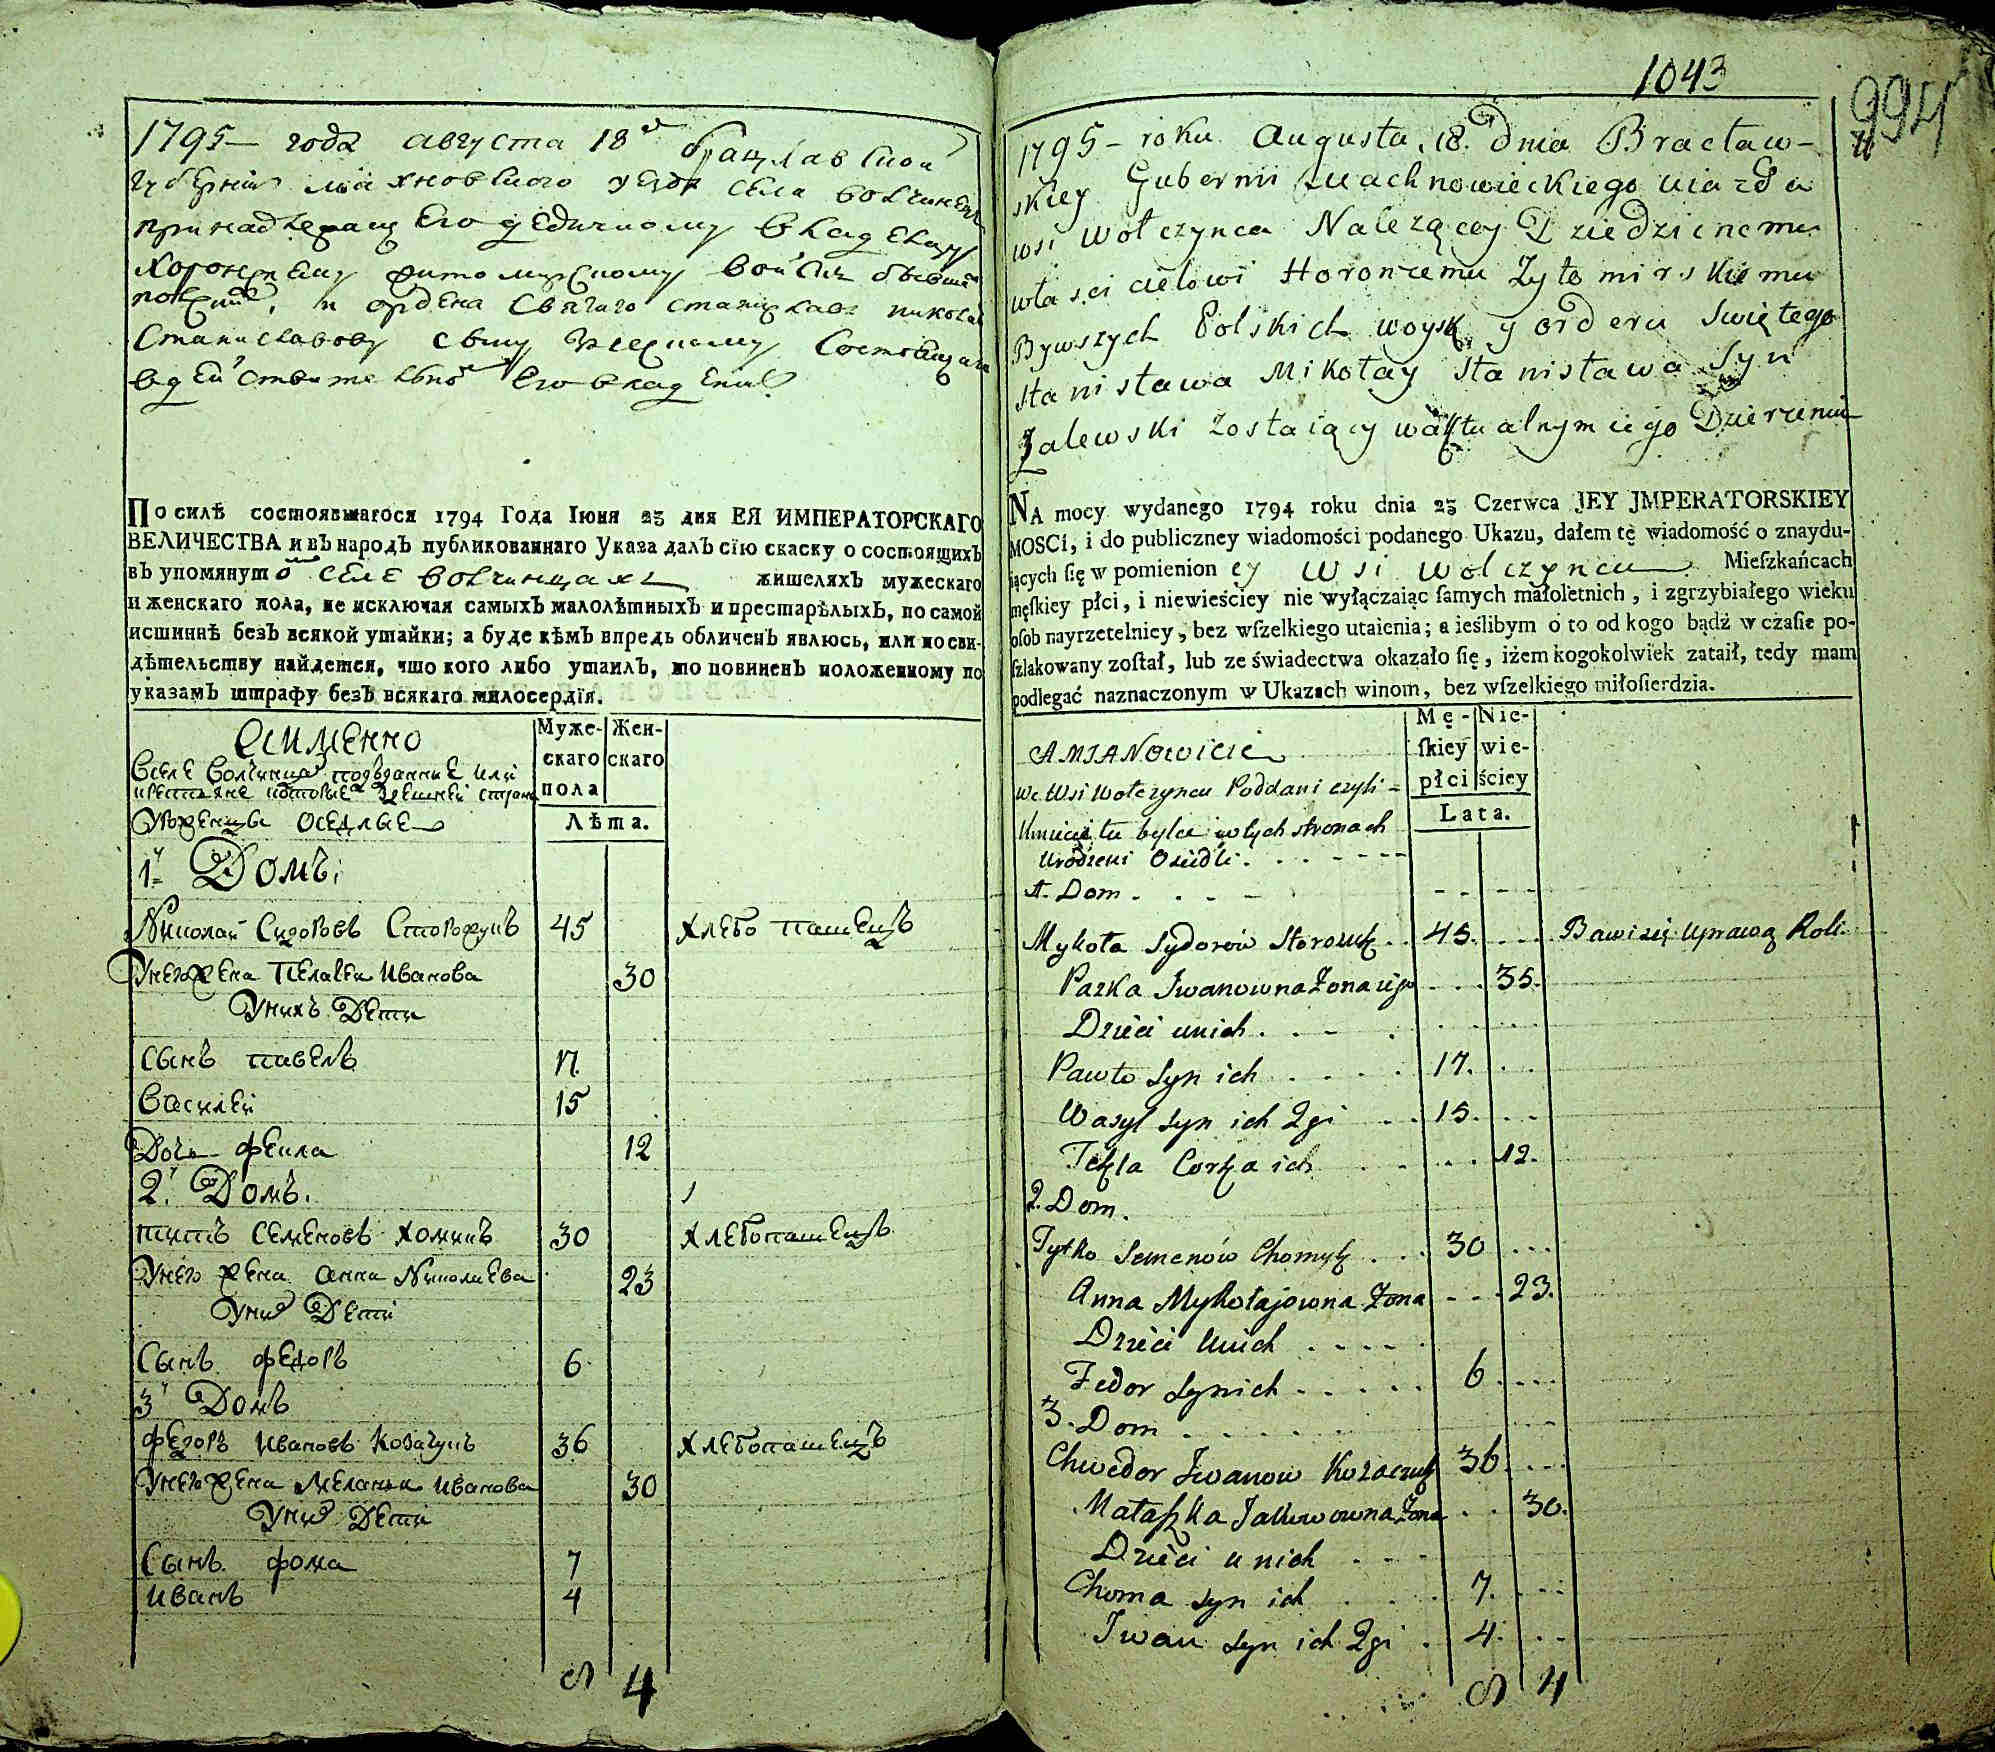 1795 – года августа 18го брацлавской
губернии махновского уезда села волчинец
принадлежащего дедичному владельцу
Хоронжему житомирскому войск бывших
польских, и ордена Святаго станислава николаю
Станиславову сыну Состоящаго
в действительном его владении
По силѣ состоявшагося 1794 Года Іюня 23 дня ЕЯ ИМПЕРАТОРСКАГО
ВЕЛИЧЕСТВА и въ народъ публикованнаго Указа далъ сїю скаску о состоящихъ
въ упомянутомъ селе волчинцахъ жителяхъ мужескаго
и женскаго пола, не исключая самыхъ малолѣтныхъ и престарѣлыхъ, по самой
истиннѣ безъ всякой утайки; а буде кѣмъ впредь обличенъ явлюсь, или по сви-
дѣтельству найдется, что кого либо утаилъ, то повиненъ положенному по
указамъ штрафу безъ всякаго милосердїя.
Аименно
Муже-
скаго
пола
Жен-
скаго
Лѣта.
Вселе Волчинца подъданные или
крестьяне которые здешней стороны
Уроженцы оседлые
1й Домъ:
Николай Сидоровъ Сторожукъ 45 хлебо пашецъ
Унего жена Пелагея Иванова 30
Унихъ Дети
Сынъ павелъ 17.
Василей 15
Дочь фекла 12
2й Домъ.
титъ Семеновъ Хомикъ 30 хлебопашецъ
Унего жена анна Николаева 23
Уних Дети
Сынъ федоръ 6.
3й Домъ
федоръ Ивановъ Козачукъ 36 хлебопашецъ
Унего жена Меланья Иванова 30
Уних Дети
Сынъ фома 7
иванъ 4
4
1043
994
1795 – roku Augusta 18. Dnia Bracław-
skiey Gubernii Machnowieckiego uiazdu
wsi Wołczynca Należącey Dziedzicnemu
włascicielowi Horonżemu Żytomirskiemu
Bywszych Polskich woysk y orderu Swiętego
Stanisława Mikołay Stanisława Syn
Zalewski Zostaiący waktualnym iego Dzierzeniu
NA mocy wydanego 1794 roku dnia 23 Czerwca JEY JMPERATORSKIEY
MOSCI, i do publiczney wiadomości podanego Ukazu, dałem tę wiadomość o znaydu-
iących ſię w pomienioney wsi wolczyncu Mieſzkańcach
męſkiey płci, i niewieściey nie wyłączaiąc ſamych małoletnich, i zgrzybiałego wieku
osob nayrzetelniey, bez wſzelkiego utaienia; a ieślibym o to od kogo bądź w czaſie po-
ſzlakowany zoſtał, lub ze świadectwa okazało ſię, iżem kogokolwiek zataił, tedy mam
podlegać naznaczonym w Ukazach winom, bez wſzelkiego miłoſierdzia.
AMIANOwicie
Mę-
ſkiey
płci
Nie-
wie-
ściey
Lata.
we Wsi Wołczyncu Poddani czyli –
Kmiecie tu w tych stronach
Urodzeni Osiedli.
1. Dom
Mykoła Sydorów Storozuk 45. Bawi się uprawą Roli.
Pazka Iwanowna Żona iego 35.
Dzieci unich
Pawło syn ich 17.
Wasyl syn ich 2gi 15.
Tekla Corka ich 12.
2. Dom.
Tytko Semenów Chomyk 30
Anna Mykołajowna Żona 23.
Dzieci Unich
Fedor syn ich 6
3. Dom
Chwedor Iwanow Kozaczuk 36
Małaszka Zona 30.
Dzieci unich
Choma syn ich 7.
Iwan syn ich 2gi 4.
4